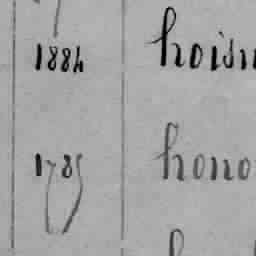 1884 hoisn
1785 hono